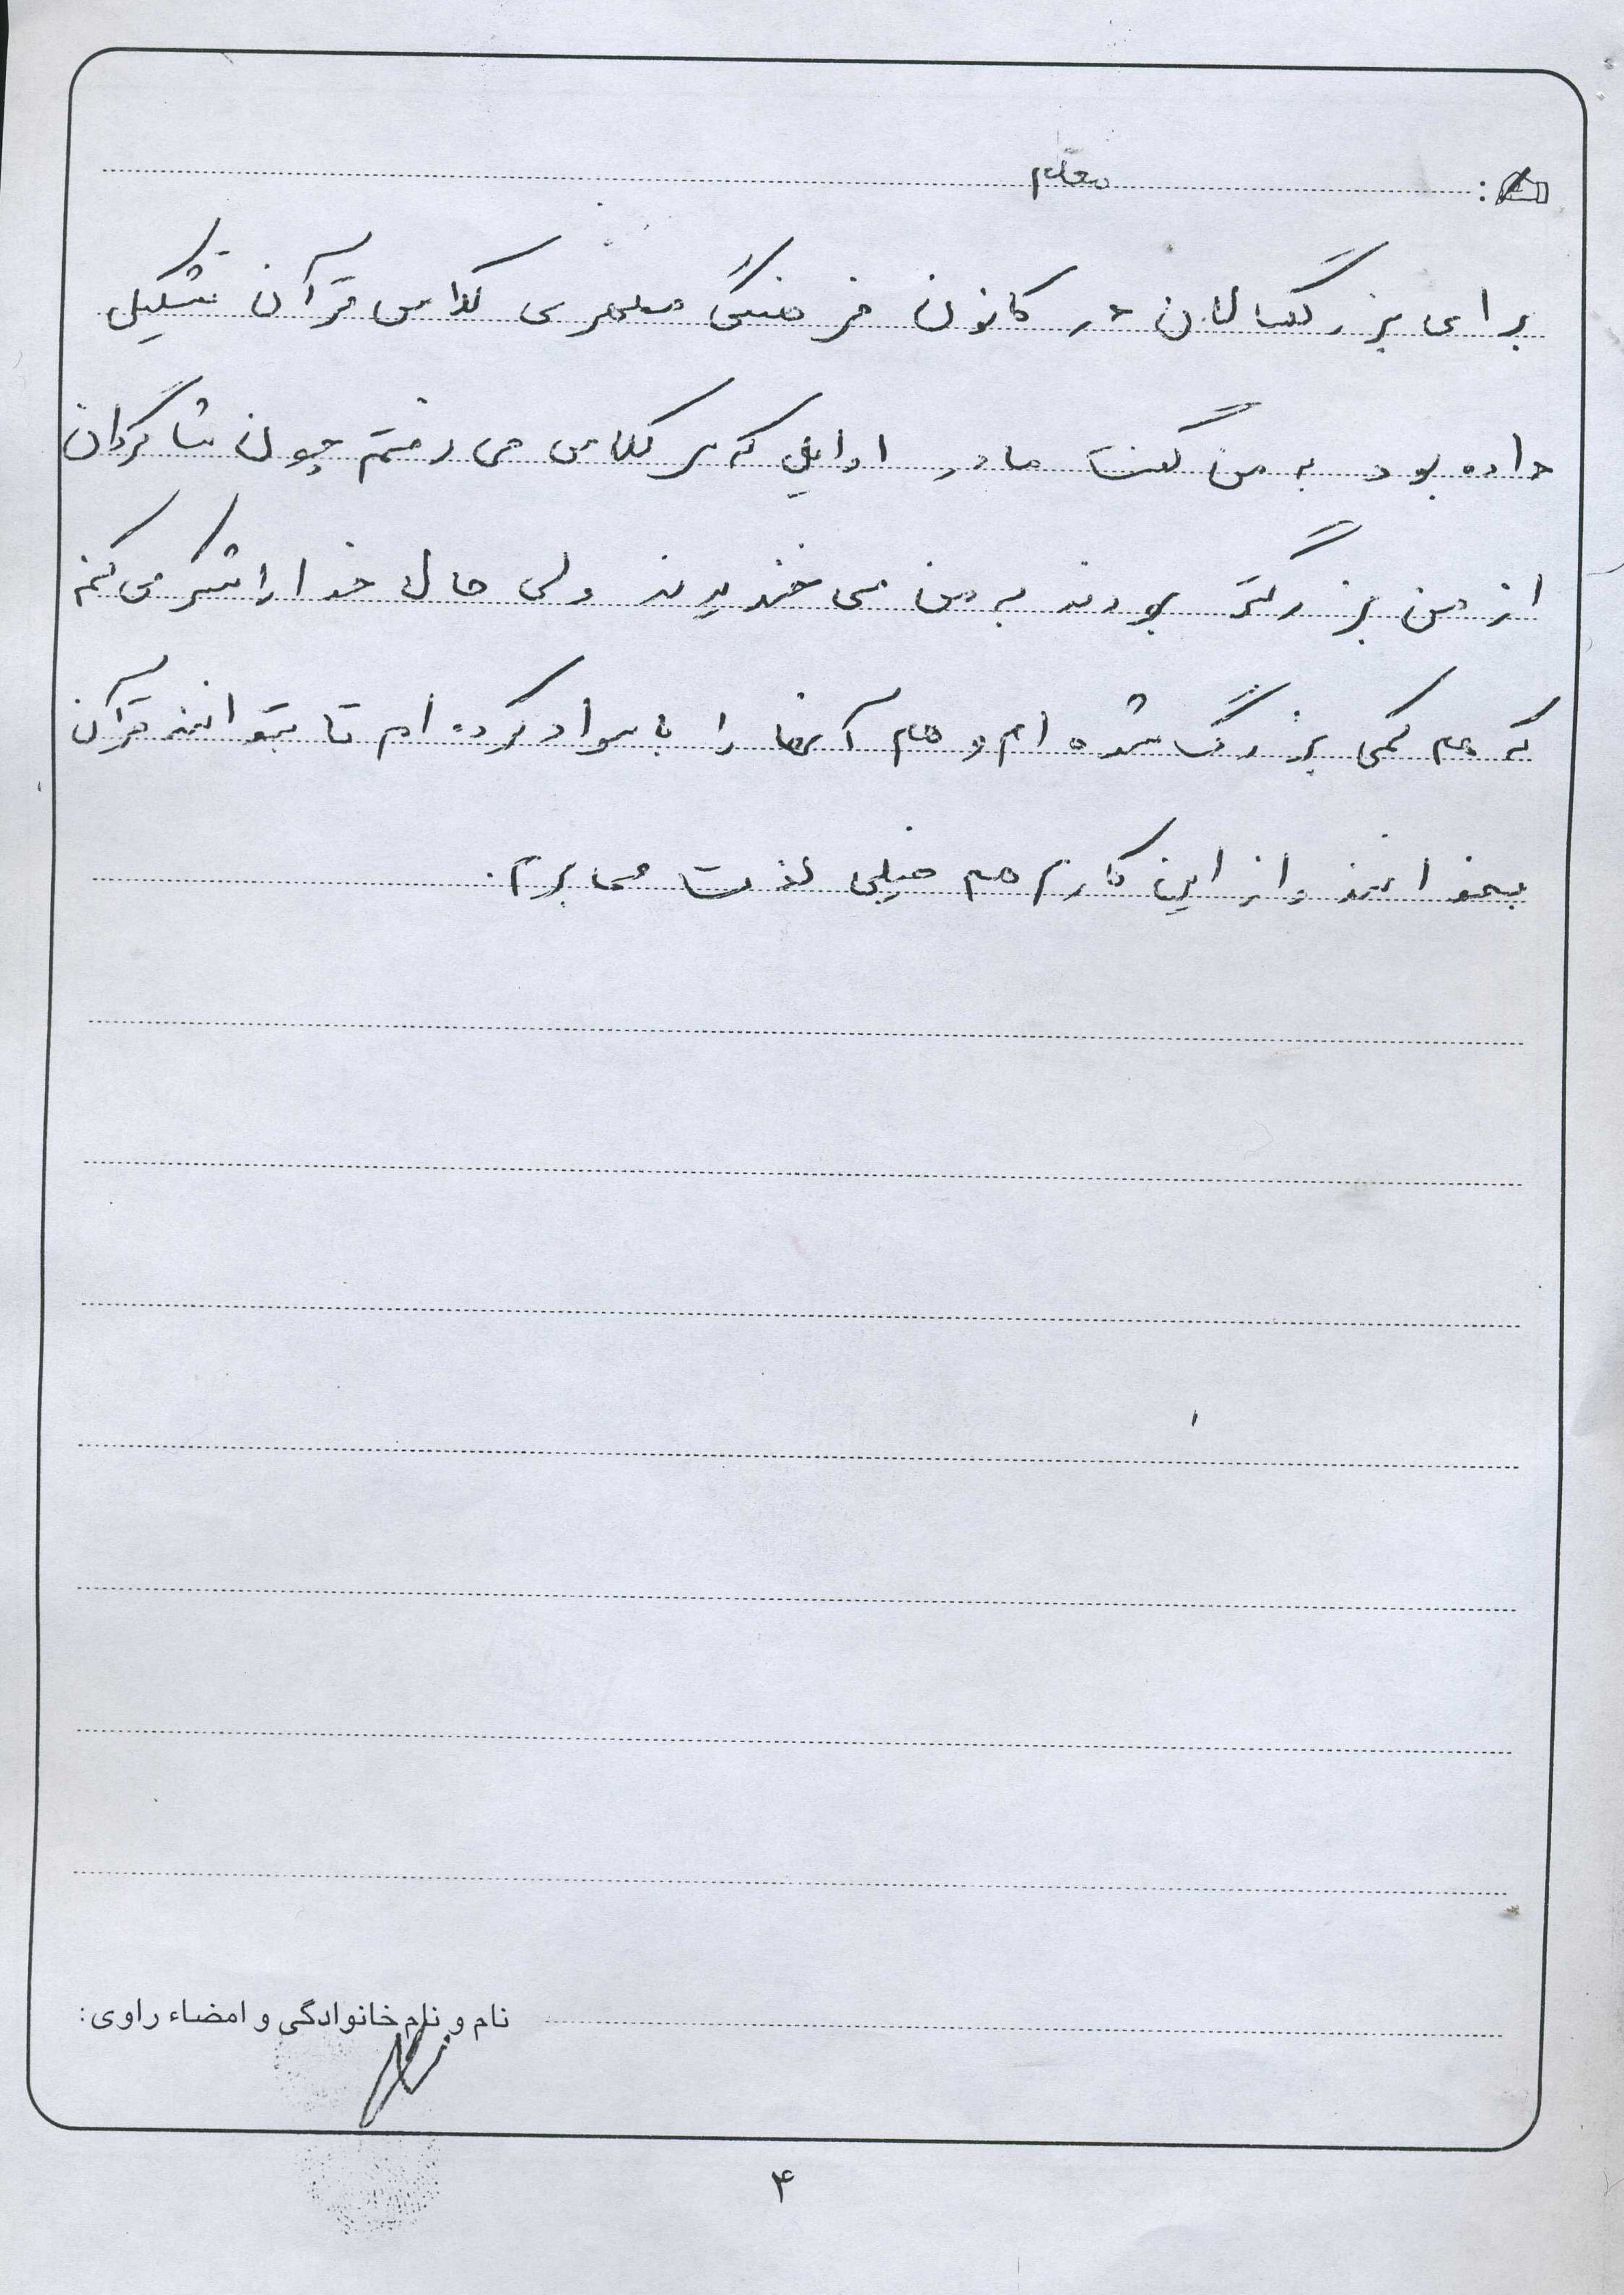 : معلم
برای بزرگسالان در کانون فرهنگی مطهری کلاس قرآن تشکیل
داده بود به من گفت مادر اوایل که سر کلاس می رفتم چون شاگردان
از من بزرگتر بودند به من می خندیدند ولی حال خدا را شکر می کنم
که هم کمی بزرگ شده ام و هم آنها را باسواد کرده ام تا بتوانند قرآن
بخوانند و از این کارم هم خیلی لذت می برم.
نام و نام خانوادگی و امضاء راوی:
۴